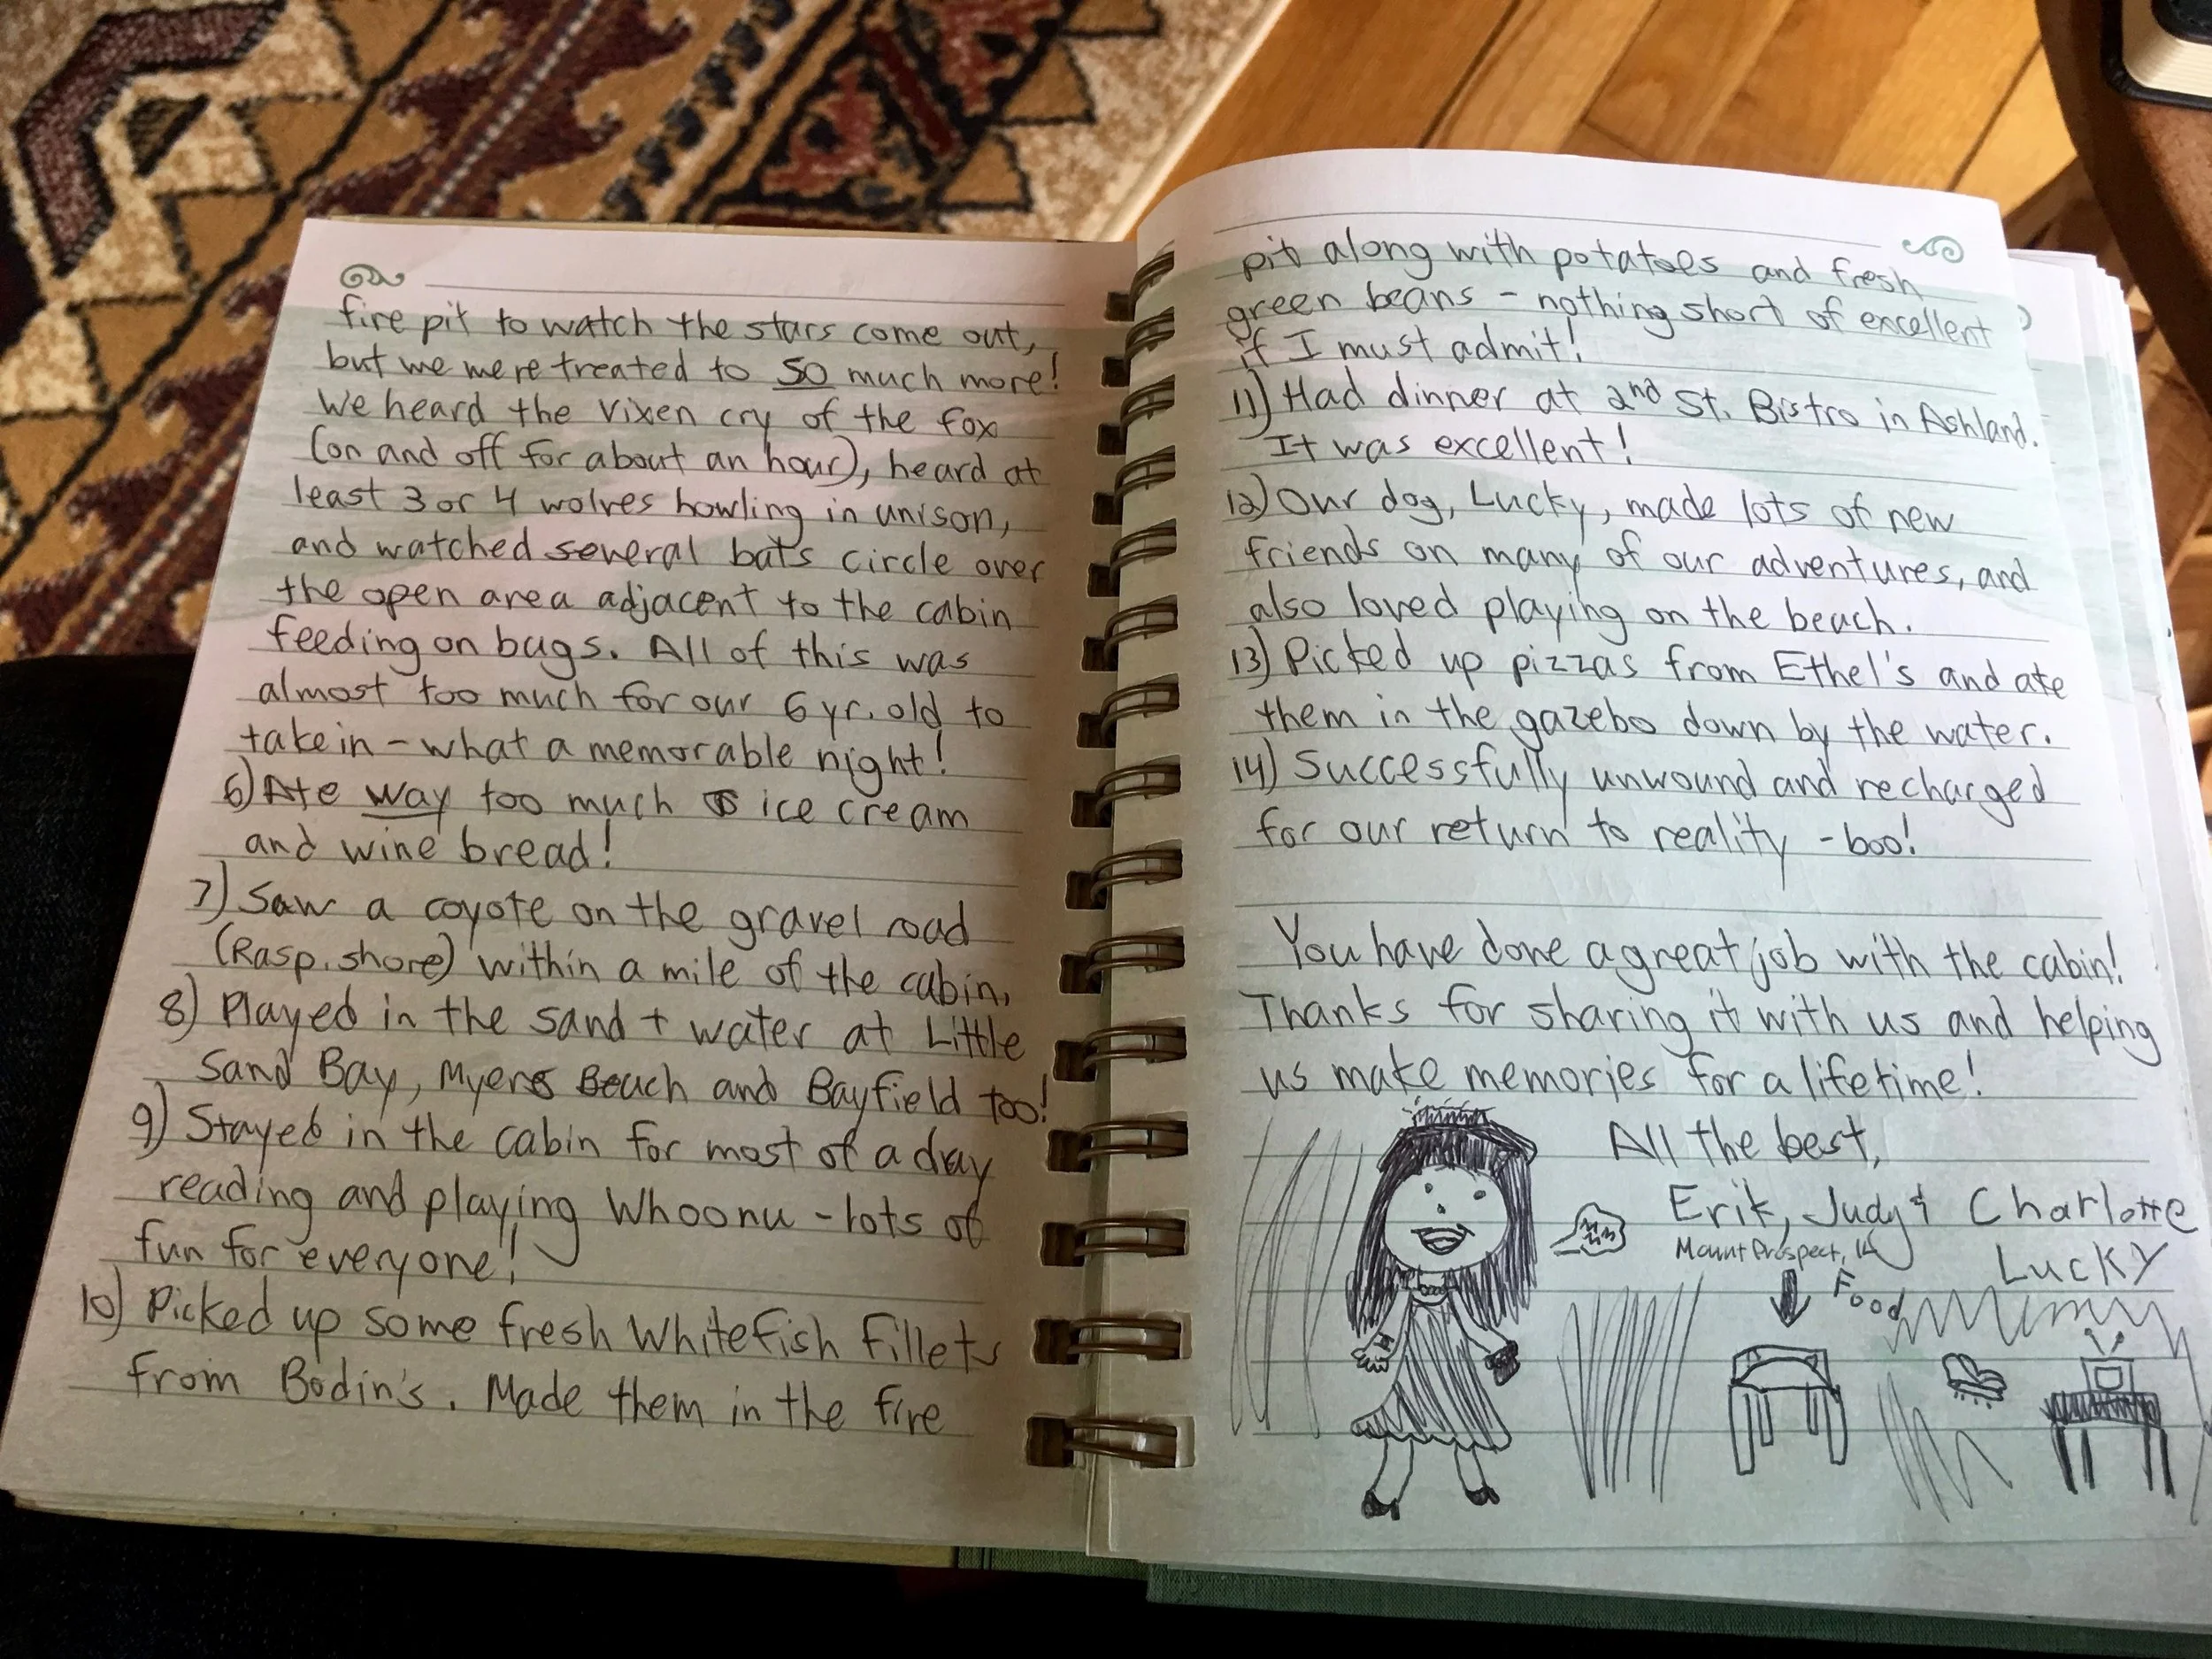 fire pit to watch the stars come out,
but we were treated to SO much more!
We heard the vixen cry of the fox
(on and off for about an hour), heard at
least 3 or 4 wolves howling in unison,
and watched several bats circle over
the open area adjacent to the cabin
feeding on bugs. All of this was
almost too much for our 6 yr. old to
take in - what a memorable night!
6) Ate way too much ice cream
and wine bread!
7) Saw a coyote on the gravel road
(Rasp. shore) within a mile of the cabin.
8) Played in the sand + water at Little
Sand Bay, Myers Beach and Bayfield too!
9) Stayed in the cabin for most of a day
reading and playing Whoonu - lots of
fun for everyone!
10) Picked up some fresh Whitefish fillets
from Bodin's. Made them in the fire
pit along with potatoes and fresh
green beans - nothing short of excellent
if I must admit!
11) Had dinner at 2nd St. Bistro in Ashland.
It was excellent!
12) Our dog, Lucky, made lots of new
friends on many of our adventures, and
also loved playing on the beach.
13) Picked up pizzas from Ethel's and ate
them in the gazebo down by the water.
14) Successfully unwound and recharged
for our return to reality - boo!
You have done a great job with the cabin!
Thanks for sharing it with us and helping
us make memories for a lifetime!
All the best,
Erik, Judy & Charlotte
Mount Prospect,
LUCKY
Food